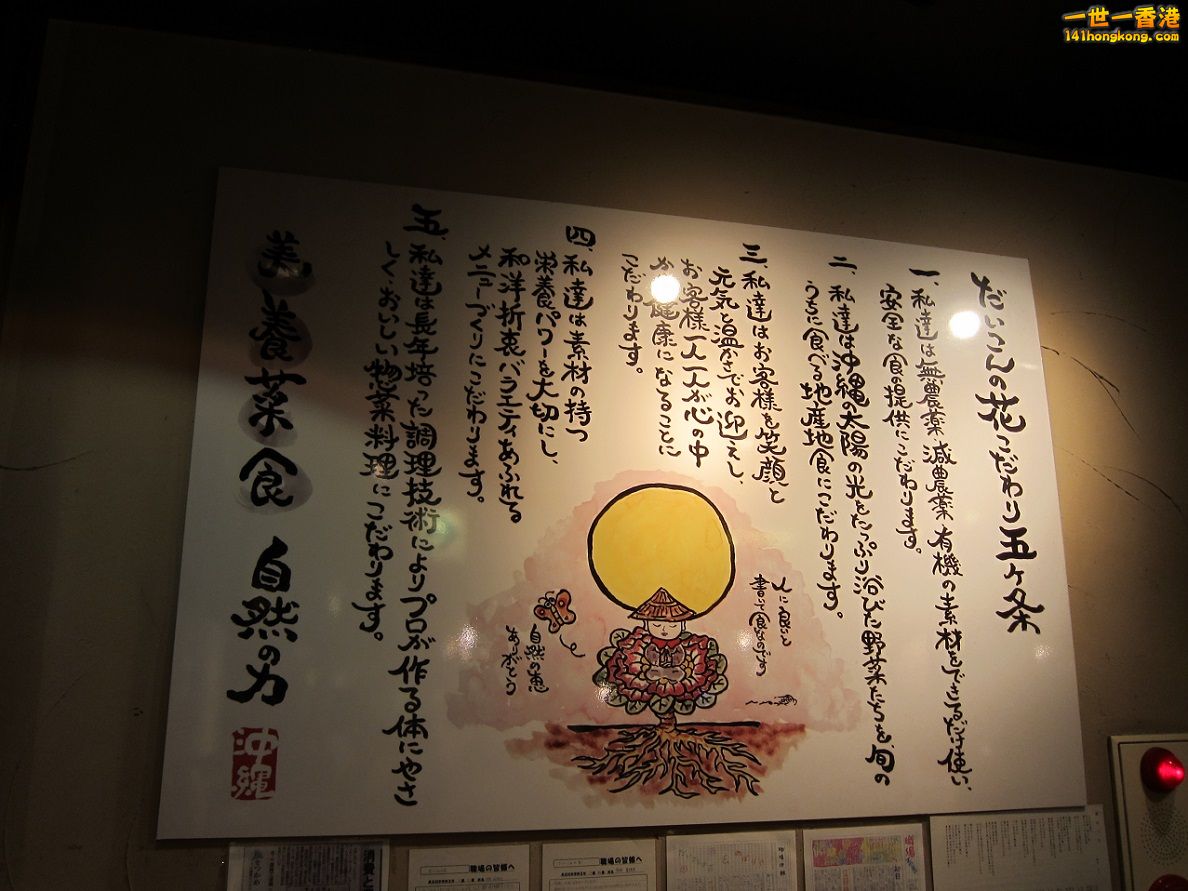 一世一香港
141hongkong.com
だいこんの花こだわり五ヶ条
一、私達は無農薬、減農薬、有機の素材をできるだけ使い、
安全な食の提供にこだわります。
二、私達は沖縄の太陽の光をたっぷり浴びた野菜たちを、旬の
うちに食べる地産地食にこだわります。
三、私達はお客様を笑顔と
元気と温かさでお迎えし、
お客様一人一人が心の中
から健康になることに
こだわります。
四、私達は素材の持つ
栄養パワーを大切にし、
和洋折衷バラエティあふれる
メニューづくりにこだわります。
五、私達は長年培った調理技術によりプロが作る体にやさ
しく、おいしい惣菜料理にこだわります。
美養菜食 自然の力
沖縄
人に良いと
書いて食なのです
自然の恵
ありがとう
職場の皆様へ
職場の皆様へ